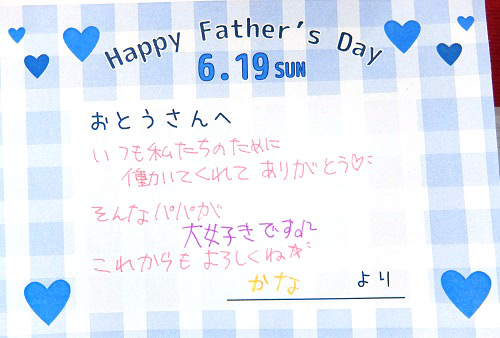 Happy Father's Day
6.19 SUN
おとうさんへ
いつも私たちのために
働いてくれて ありがとう♡
そんなパパが
大好きです♫
これからも よろしくね☆
かな より